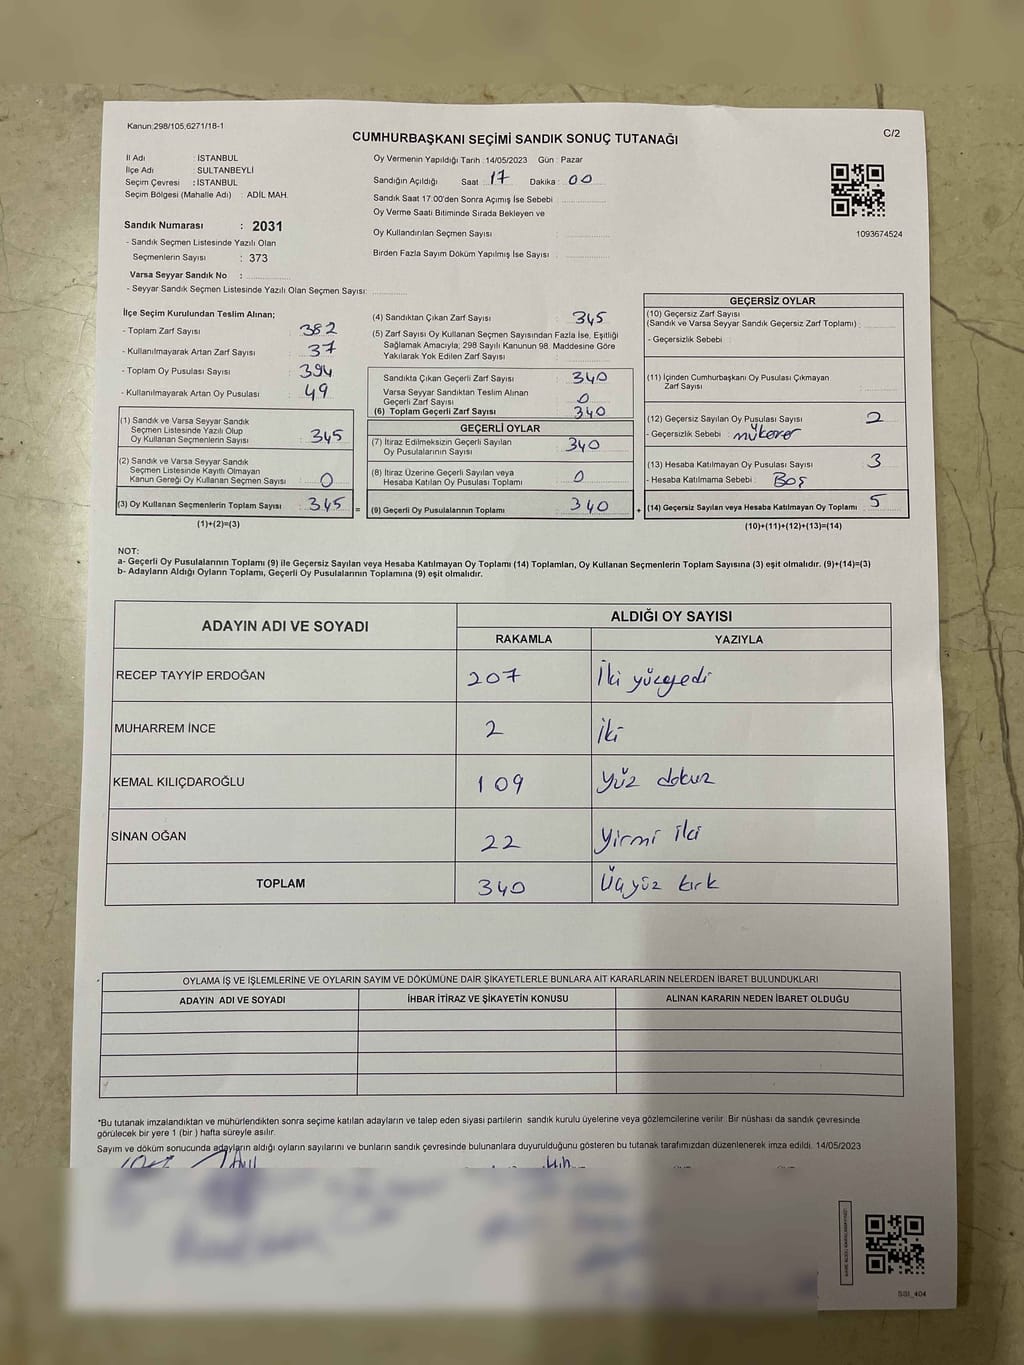 Kanun:298/105,6271/18-1
C/2
CUMHURBAŞKANI SEÇİMİ SANDIK SONUÇ TUTANAĞI
İl Adı : İSTANBUL
İlçe Adı : SULTANBEYLİ
Seçim Çevresi : İSTANBUL
Seçim Bölgesi (Mahalle Adı) : ADİL MAH.
Oy Vermenin Yapıldığı Tarih :14/05/2023 Gün : Pazar
Sandığın Açıldığı Saat : 17 Dakika : 00
Sandık Saat 17:00'den Sonra Açımış İse Sebebi :
Oy Verme Saati Bitiminde Sırada Bekleyen ve
Oy Kullandırılan Seçmen Sayısı :
Birden Fazla Sayım Döküm Yapılmış İse Sayısı :
1093674524
Sandık Numarası : 2031
- Sandık Seçmen Listesinde Yazılı Olan
Seçmenlerin Sayısı : 373
Varsa Seyyar Sandık No :
- Seyyar Sandık Seçmen Listesinde Yazılı Olan Seçmen Sayısı:
İlçe Seçim Kurulundan Teslim Alınan;
- Toplam Zarf Sayısı : 382
- Kullanılmayarak Artan Zarf Sayısı : 37
- Toplam Oy Pusulası Sayısı : 394
- Kullanılmayarak Artan Oy Pusulası : 49
(1) Sandık ve Varsa Seyyar Sandık
Seçmen Listesinde Yazılı Olup
Oy Kullanan Seçmenlerin Sayısı : 345
(2) Sandık ve Varsa Seyyar Sandık
Seçmen Listesinde Kayıtlı Olmayan
Kanun Gereği Oy Kullanan Seçmen Sayısı : 0
(3) Oy Kullanan Seçmenlerin Toplam Sayısı : 345 =
(1)+(2)=(3)
(4) Sandıktan Çıkan Zarf Sayısı : 345
(5) Zarf Sayısı Oy Kullanan Seçmen Sayısından Fazla İse, Eşitliği
Sağlamak Amacıyla; 298 Sayılı Kanunun 98. Maddesine Göre
Yakılarak Yok Edilen Zarf Sayısı :
Sandıkta Çıkan Geçerli Zarf Sayısı : 340
Varsa Seyyar Sandıktan Teslim Alınan
Geçerli Zarf Sayısı : 0
(6) Toplam Geçerli Zarf Sayısı : 340
GEÇERLİ OYLAR
(7) İtiraz Edilmeksizin Geçerli Sayılan
Oy Pusulalarının Sayısı : 340
(8) İtiraz Üzerine Geçerli Sayılan veya
Hesaba Katılan Oy Pusulası Toplamı : 0
(9) Geçerli Oy Pusulalarının Toplamı : 340 +
GEÇERSİZ OYLAR
(10) Geçersiz Zarf Sayısı
(Sandık ve Varsa Seyyar Sandık Geçersiz Zarf Toplamı) :
- Geçersizlik Sebebi :
(11) İçinden Cumhurbaşkanı Oy Pusulası Çıkmayan
Zarf Sayısı :
(12) Geçersiz Sayılan Oy Pusulası Sayısı : 2
- Geçersizlik Sebebi : mükerer
(13) Hesaba Katılmayan Oy Pusulası Sayısı : 3
- Hesaba Katılmama Sebebi : Boş
(14) Geçersiz Sayılan veya Hesaba Katılmayan Oy Toplamı : 5
(10)+(11)+(12)+(13)=(14)
NOT:
a- Geçerli Oy Pusulalarının Toplamı (9) ile Geçersiz Sayılan veya Hesaba Katılmayan Oy Toplamı (14) Toplamları, Oy Kullanan Seçmenlerin Toplam Sayısına (3) eşit olmalıdır. (9)+(14)=(3)
b- Adayların Aldığı Oyların Toplamı, Geçerli Oy Pusulalarının Toplamına (9) eşit olmalıdır.
ADAYIN ADI VE SOYADI ALDIĞI OY SAYISI
RAKAMLA YAZIYLA
RECEP TAYYİP ERDOĞAN 207 İki yüzyedi
MUHARREM İNCE 2 İki
KEMAL KILIÇDAROĞLU 109 Yüz dokuz
SİNAN OĞAN 22 Yirmi iki
TOPLAM 340 Üçyüz kırk
OYLAMA İŞ VE İŞLEMLERİNE VE OYLARIN SAYIM VE DÖKÜMÜNE DAİR ŞİKAYETLERLE BUNLARA AİT KARARLARIN NELERDEN İBARET BULUNDUKLARI
ADAYIN ADI VE SOYADI İHBAR İTİRAZ VE ŞİKAYETİN KONUSU ALINAN KARARIN NEDEN İBARET OLDUĞU
*Bu tutanak imzalandıktan ve mühürlendikten sonra seçime katılan adayların ve talep eden siyasi partilerin sandık kurulu üyelerine veya gözlemcilerine verilir. Bir nüshası da sandık çevresinde
görülecek bir yere 1 (bir ) hafta süreyle asılır.
Sayım ve döküm sonucunda adayların aldığı oyların sayılarını ve bunların sandık çevresinde bulunanlara duyurulduğunu gösteren bu tutanak tarafımızdan düzenlenerek imza edildi. 14/05/2023
SSI_404